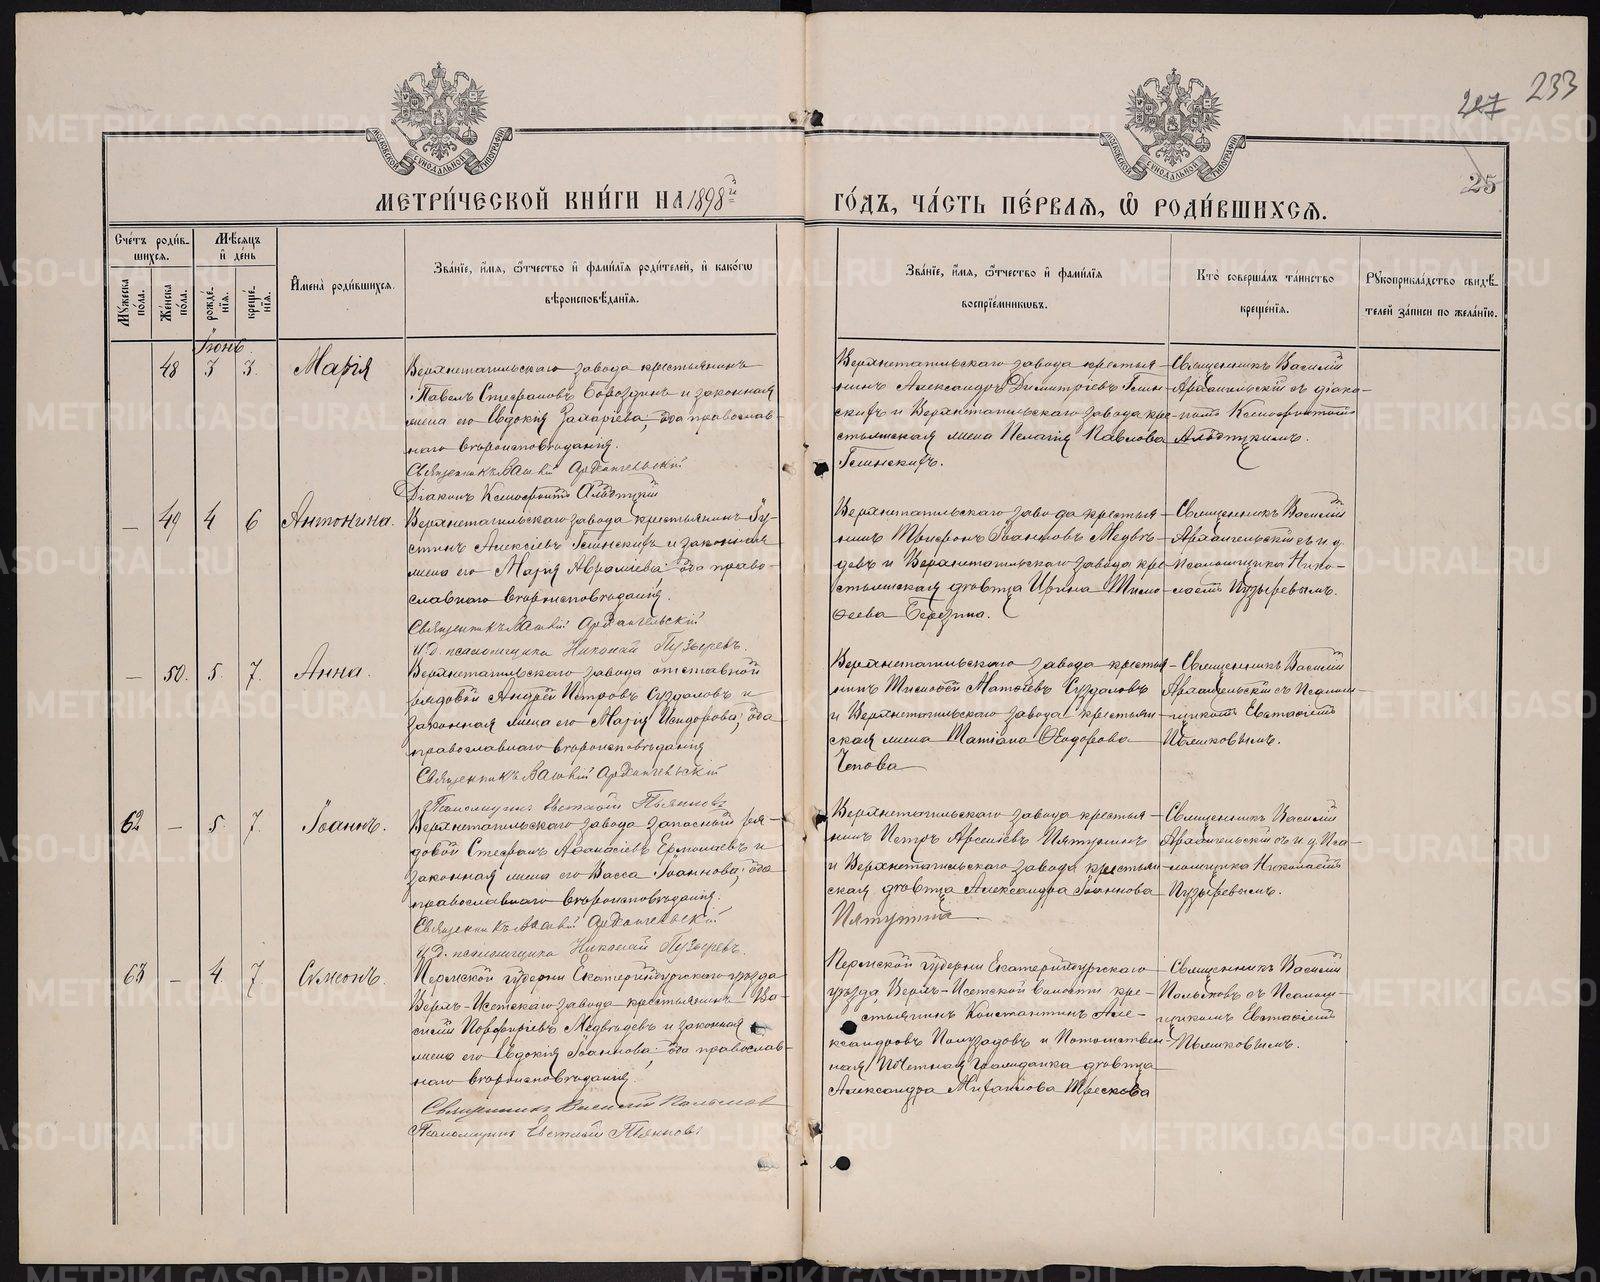 233
227
25
МОСКОВСКОЙ СѴНОДАЛЬНОЙ ТИПОГРАФІИ
МОСКОВСКОЙ СѴНОДАЛЬНОЙ ТИПОГРАФІИ
МЕТРИ́ЧЕСКОЙ КНИ́ГИ НА 1898й
ГО́ДЪ, ЧА́СТЬ ПЕ́РВАѦ, Ѡ РОДИ́ВШИХСѦ.
Сче́тъ роди́в-
шихсѧ.
Мꙋ́жеска по́ла.
Же́нска по́ла.
Мѣ́сѧцъ
и҆ де́нь
рожде́-
нїѧ.
креще́-
нїѧ.
И҆мена̀ роди́вшихсѧ.
Зва́нїе, и҆́мѧ, ѻ҆́тчество и҆ фами́лїѧ роди́телей, и҆ како́гѡ
вѣроисповѣ́данїѧ.
Зва́нїе, и҆́мѧ, ѻ҆́тчество и҆ фами́лїѧ
воспрїе́мникѡвъ.
Кто̀ соверша́лъ та́инство
креще́нїѧ.
Рꙋкоприкла́дство свидѣ́-
телей за́писи по жела́нїю.
Іюнь
48 3 3. Марія
Верхнетагильскаго завода крестьянинъ
Павелъ Стефановъ Бороздинъ и законная
жена его Евдокія Захаріева; оба православ-
наго вѣроисповѣданія.
Священникъ Василій Архангельскій
Діаконъ Ксенофонтъ
Верхнетагильскаго завода крестья-
нинъ Александръ Димитріевъ Глин-
скихъ и Верхнетагильскаго завода кре-
стьянская жена Пелагія Павлова
Глинскихъ.
Священникъ Василій
Архангельскій съ діако-
номъ Ксенофонтомъ
— 49 4 6 Антонина.
Верхнетагильскаго завода крестьянинъ Іу-
стинъ Алексіевъ Глинскихъ и законная
жена его Марія Авраміева; оба право-
славнаго вѣроисповѣданія.
Священникъ Василій Архангельскій
И.д. псаломщика Николай Пузыревъ.
Верхнетагильскаго завода крестья-
нинъ Трифонъ Іоанновъ Медвѣ-
девъ и Верхнетагильскаго завода кре-
стьянская дѣвица Ирина Тимо-
ѳеева Березина.
Священникъ Василій
Архангельскій съ и.д.
псаломщика Нико-
лаемъ Пузыревымъ.
— 50. 5. 7. Анна.
Верхнетагильскаго завода отставной
рядовой Андрей Петровъ Суздаловъ и
законная жена его Марія Исидорова; оба
православнаго вѣроисповѣданія
Священникъ Василій Архангельскій
Псаломщикъ Евстафій Пьянковъ
Верхнетагильскаго завода крестья-
нинъ Тимоѳей Матѳіевъ Суздаловъ
и Верхнетагильскаго завода крестьян-
ская жена Татіана Ѳеодорова
Чепова
Священникъ Василій
Архангельскій съ Псалом-
щикомъ Евстафіемъ
Пьянковымъ.
62 — 5. 7. Іоаннъ.
Верхнетагильскаго завода запасный ря-
довой Стефанъ Аѳанасіевъ Ермолаевъ и
законная жена его Васса Іоаннова; оба
православнаго вѣроисповѣданія.
Священникъ Василій Архангельскій
И.д. псаломщика Николай Пузыревъ.
Верхнетагильскаго завода крестья-
нинъ Петръ Арсеніевъ Пятунинъ
и Верхнетагильскаго завода крестьян-
ская дѣвица Александра Іоаннова
Пятунина
Священникъ Василій
Архангельскій съ и.д. Пса-
ломщика Николаемъ
Пузыревымъ.
63 — 4. 7. Сѵмеонъ.
Пермской губерніи Екатеринбургскаго уѣзда
Верхъ-Исетскаго завода крестьянинъ Ва-
силій Порфиріевъ Медвѣдевъ и законная
жена его Евдокія Іоаннова; оба православ-
наго вѣроисповѣданія.
Священникъ Василій
Псаломщикъ Евстафій Пьянковъ
Пермской губерніи Екатеринбургскаго
уѣзда, Верхъ-Исетской волости кре-
стьянинъ Константинъ Але-
ксандровъ Полузадовъ и Потомствен-
ная Почетная Гражданка дѣвица
Александра Михаилова Трескова
Священникъ Василій
съ Псалом-
щикомъ Евстафіемъ
Пьянковымъ.
METRIKI.GASO-URAL.RU